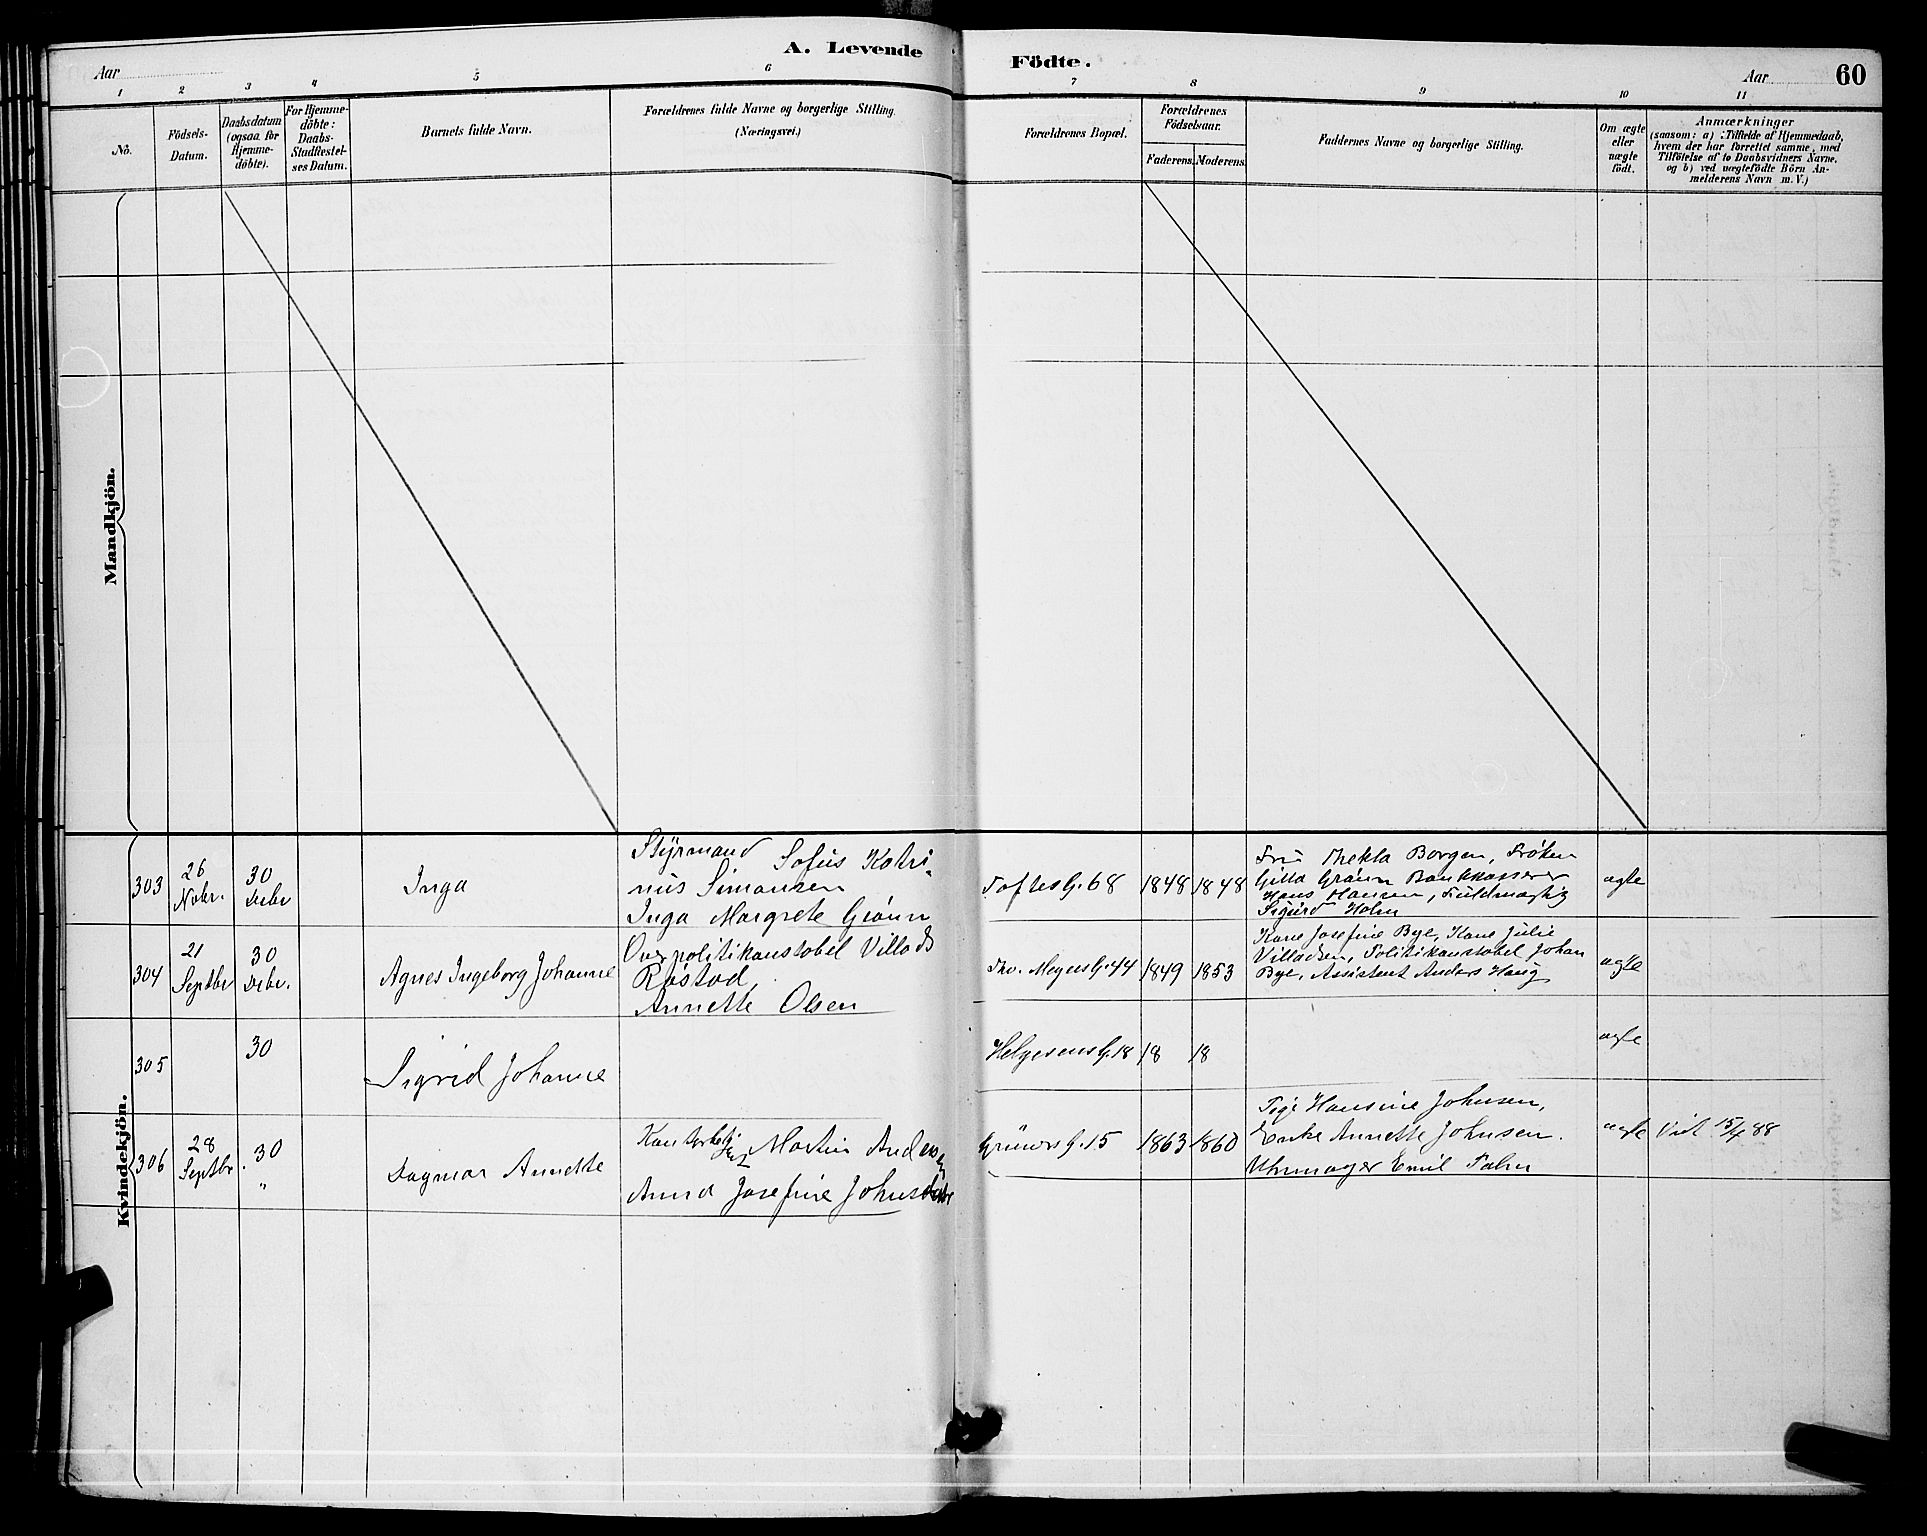 A. Levende Födte.
Aar
Aar
60
1 2 3 4 5 6 7 8 9 10 11
No.
Födsels-
Datum.
Daabsdatum
(ogsaa for
Hjemme-
döbte).
For Hjemme-
döbte:
Daabs-
Stadfestel-
ses Datum.
Barnets fulde Navn.
Forældrenes fulde Navne og borgerlige Stilling
(Næringsvei.)
Forældrenes Bopæl.
Forældrenes
Födselsaar.
Faderens.
Moderens.
Faddernes Navne og borgerlige Stilling.
Om ægte
eller
uægte
födt.
Anmærkninger
(saasom: a) Tilfælde af Hjemmedaab,
hvem der har forrettet samme, med
Tilföielse af to Daabsvidners Navne,
og b) ved uægtefödte Börn An-
melderens Navn m. V.)
Mandkjön.
Kvindekjön.
303
26
Nobr.
30
Debr
Inga
Styrmand Sofus Katri-
nus Simonsen
Inga Margrete Grønn
Toftes G. 68
1848
1848
Fru Thekla Borgen, Frøken
Gilla Grønn Bankkasserer
Hans Hansen, Fuldmægtig
Sigurd Holm
ægte
304
21
Septbr
30
Debr.
Agnes Ingeborg Johanne
Overpolitikonstobel Villads
Røstad,
Annette Olsen
Thv. Meyers G. 44
1849
1853
Kone Josefine Bye, Kone Julie
Villadsen, Politikonstobel Johan
Bye, Assistent Anders Haug
ægte
305
30
Sigrid Johanne
Helgesens G. 18
18
18
ægte
306
28
Septbr.
30
"
Dagmar Annette
Martin Andersen
Anna Josefine Johnsdatter
Grüners G. 15
1863
1860
Pige Hansine Johnsen,
Enke Annette Johnsen.
Uhrmager Emil Palm
ægte
15/4 88